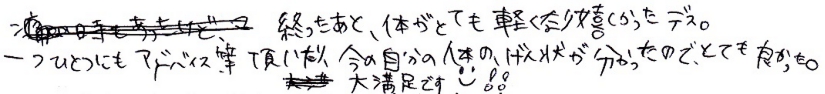 終ったあと、体がとても軽くなり嬉しかったデス。
一つひとつにもアドバイス等頂いたり、今の自分の体の、げん状が分かったので、とても良かった。
大満足です!!